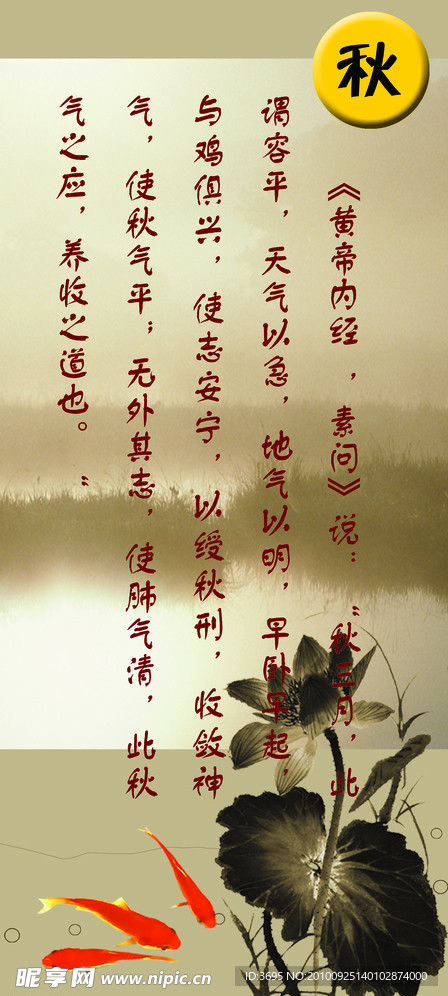 秋
《黄帝内经，素问》说：“秋三月，此
谓容平，天气以急，地气以明，早卧早起，
与鸡俱兴，使志安宁，以缓秋刑，收敛神
气，使秋气平；无外其志，使肺气清，此秋
气之应，养收之道也。”
昵享网 www.nipic.cn
ID:3695 NO:20100925140102874000